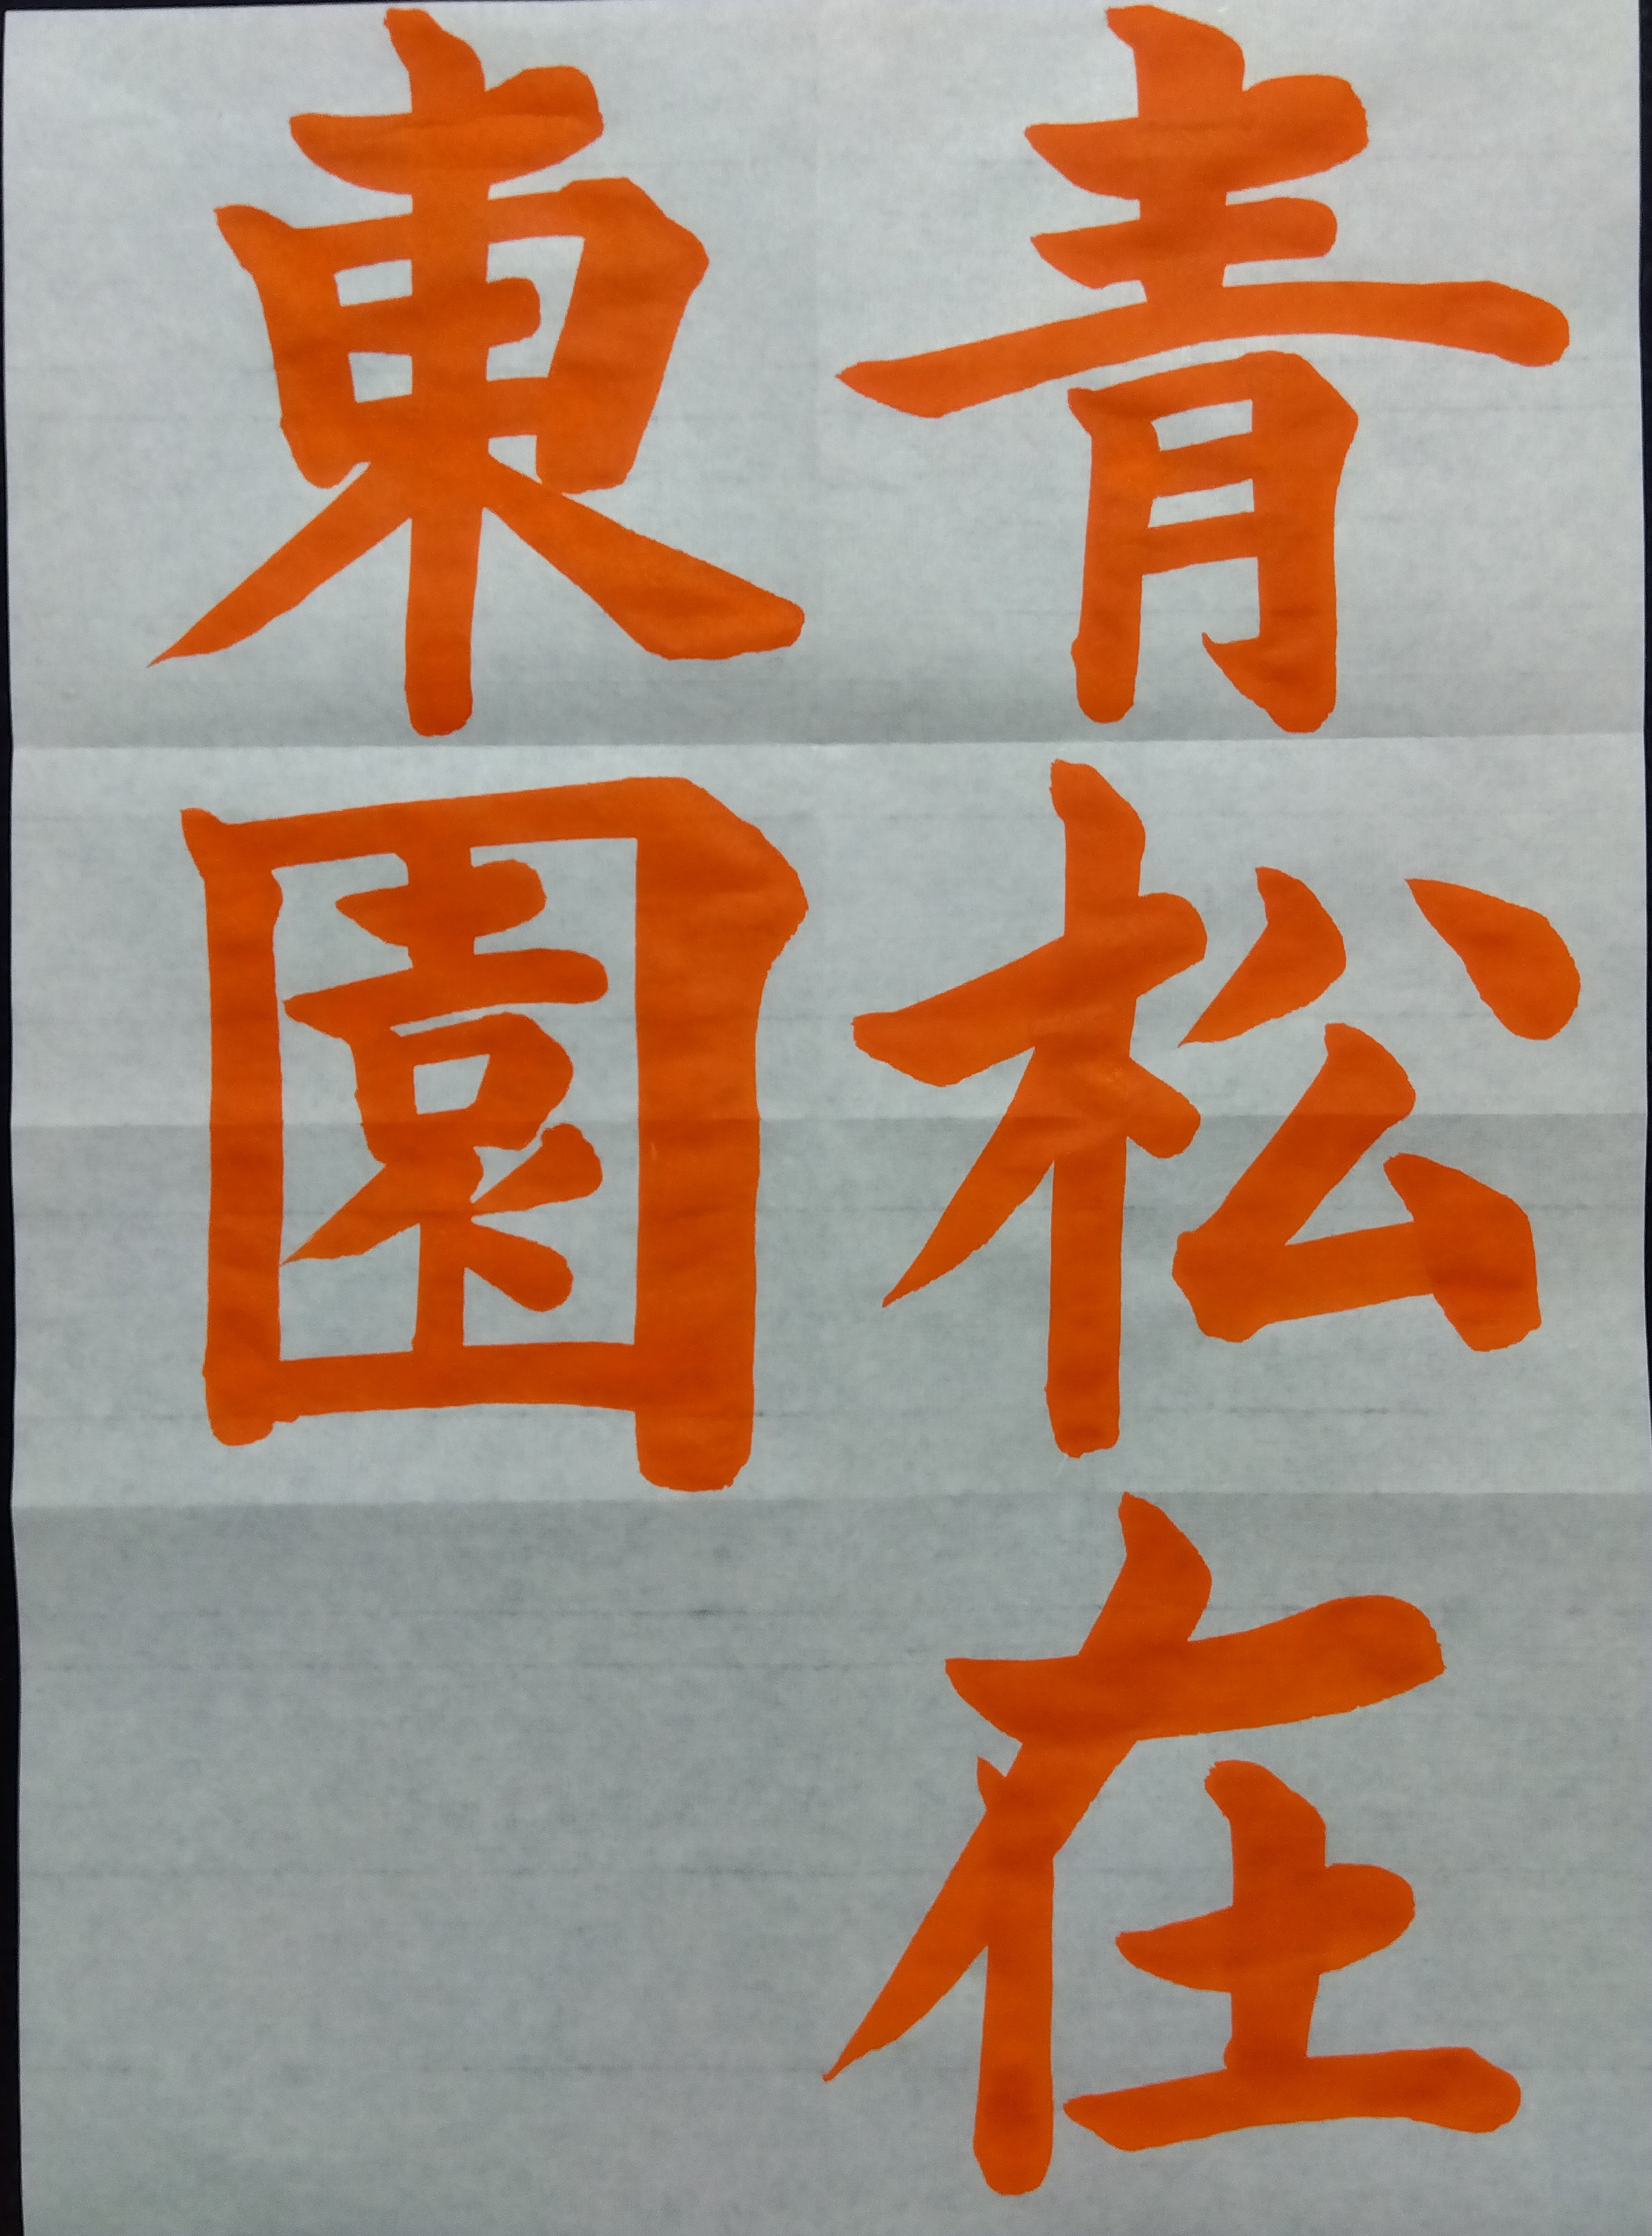 青松在
東園